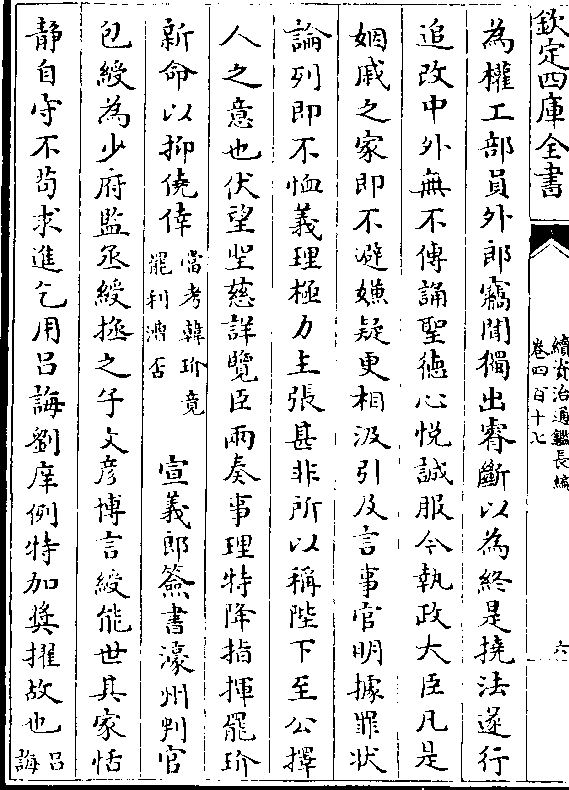 欽定四庫全書
續資治通鑑長編
卷四百十七
六
為權工部員外郎竊聞獨出睿斷以為終是撓法遂行
追改中外無不傳誦聖徳心悦誠服今執政大臣凡是
姻戚之家即不避嫌疑更相汲引及言事官明據罪状
論列即不恤義理極力主張甚非所以稱陛下至公擇
人之意也伏望聖慈詳覽臣兩奏事理特降指揮罷玠
新命以抑僥倖當考韓玠竟罷利漕否　宣義郎簽書濠州判官
包綬為少府監丞綬拯之子文彦博言綬能世其家恬
静自守不苟求進乞用吕誨劉庠例特加奬擢故也吕誨